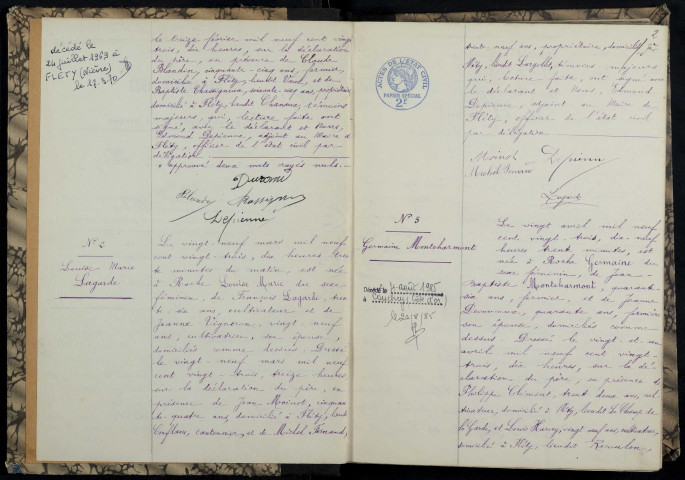 décédé le
24 juillet 1969 à
FLÉTY (Nièvre)
le treize février mil neuf cent vingt
trois, dix heures, sur la déclaration
du père, en présence de Claude
Blandin, cinquante cinq ans, fermier,
domicilié à Fléty, lieudit
Baptiste Chassignon, soixante ans, propriétaire
domicilié à Fléty, lieudit témoins
majeurs, qui, lecture faite ont
signé, avec le déclarant et Nous,
Edmond Depienne, adjoint au Maire de
Fléty, officier de l'état civil par
délégation.
approuvé deux mots rayés nuls.
Depienne
N° 2
Louise Marie
Lagarde
Le vingt neuf mars mil neuf
cent vingt trois, dix heures trente
minutes du matin, est née
à Roche Louise Marie du sexe
féminin, de François Lagarde, trente
six ans, cultivateur et de
Jeanne Vigneron, vingt neuf
ans, cultivatrice, son épouse,
domiciliés comme dessus. Dressé
le vingt neuf mars mil neuf
cent vingt trois, treize heures
sur la déclaration du père, en
présence de Jean Moinot, cinquante
quatre ans, domicilié à Fléty, lieudit
Conflans, cantonnier, et de Michel Fernand,
2
trente neuf ans, propriétaire, domicilié à
Fléty, lieudit témoins majeurs
qui, lecture faite, ont signé avec
le déclarant et Nous, Edmond
Depienne, adjoint au Maire de
Fléty, officier de l'état civil
par délégation
ACTES DE L'ETAT CIVIL
PAPIER SPECIAL
2F
Moinot Depienne
Michel Fernand
Lagarde
N° 3
Germaine Montcharmont
Décédé le 4 août 1985
à (Côte d'or)
le 20/8/85
Le vingt avril mil neuf
cent vingt trois, dix-neuf
heures trente minutes, est née
à Roche Germaine du
sexe féminin, de Jean-
Baptiste Montcharmont, quarante
six ans, fermier, et de Jeanne
quarante ans, fermière
son épouse, domiciliés comme
dessus. Dressé le vingt et un
avril mil neuf cent vingt-
trois, dix heures, sur la dé-
claration du père, en présence de
Philippe Clément, trente deux ans, cul-
tivateur, domicilié à Fléty, lieudit Le Champ de
la Garde, et Louis Harry, vingt neuf ans, cultivateur,
domicilié à Fléty, lieudit